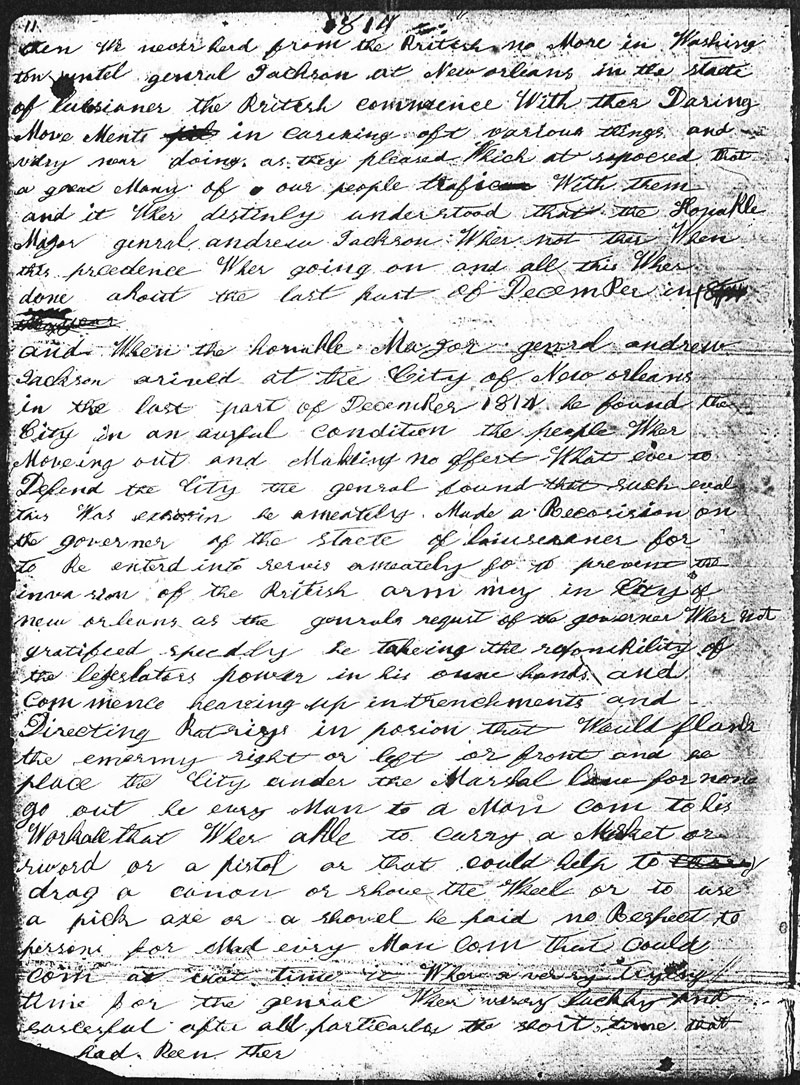 11 1814
then We never herd from the British no More in Washing
ton until genral Jackson at New orleans in the staete
of luisianer the British commence With ther Daring
Move Ments in careing oft various things and
vary near doing as they pleased Which at soposed that
a great Many of our people trafic With them
and it Wher distinly understood that the Honable
Major genral andrew Jackson Wher not ther When
this precedence Wher going on and all this Wher
done about the last part of December in 18
and When the honable Major genral andrew
Jackson arived at the City of New orleans
in the last part of December 1814 he found the
City in an awful condition the people Wher
Moveing out and Makking no effert What ever to
Defend the City the genral found that such evel
this Was he ameately Made a on
the governer of the staete of for
to Be enterd into servis ameately fo to prevent the
invasion of the British arm mey in City of
new orleans as the genrals requst of the governer Wher not
gratified specdly he takeing the resonsibility of
the legeslators power in his owne hands and
Commence heaveing up intrenchments and
Directing Batreys in posion that Would flank
the enemmy right or left or front and he
place the City under the Marshal law for none
go out he evry Man to a Man com to his
that Wher able to carry a Musket or
sword or a pistol or that could help to
drag a canon or shove the Wheel or to use
a pick axe or a shovel he paid no Respect to
persons for Mad every Man Com that Could
com at that time it Wher a verry trying
time for the genral Wher verry luckky and
sucesful after all particarley the short time that
had Been ther